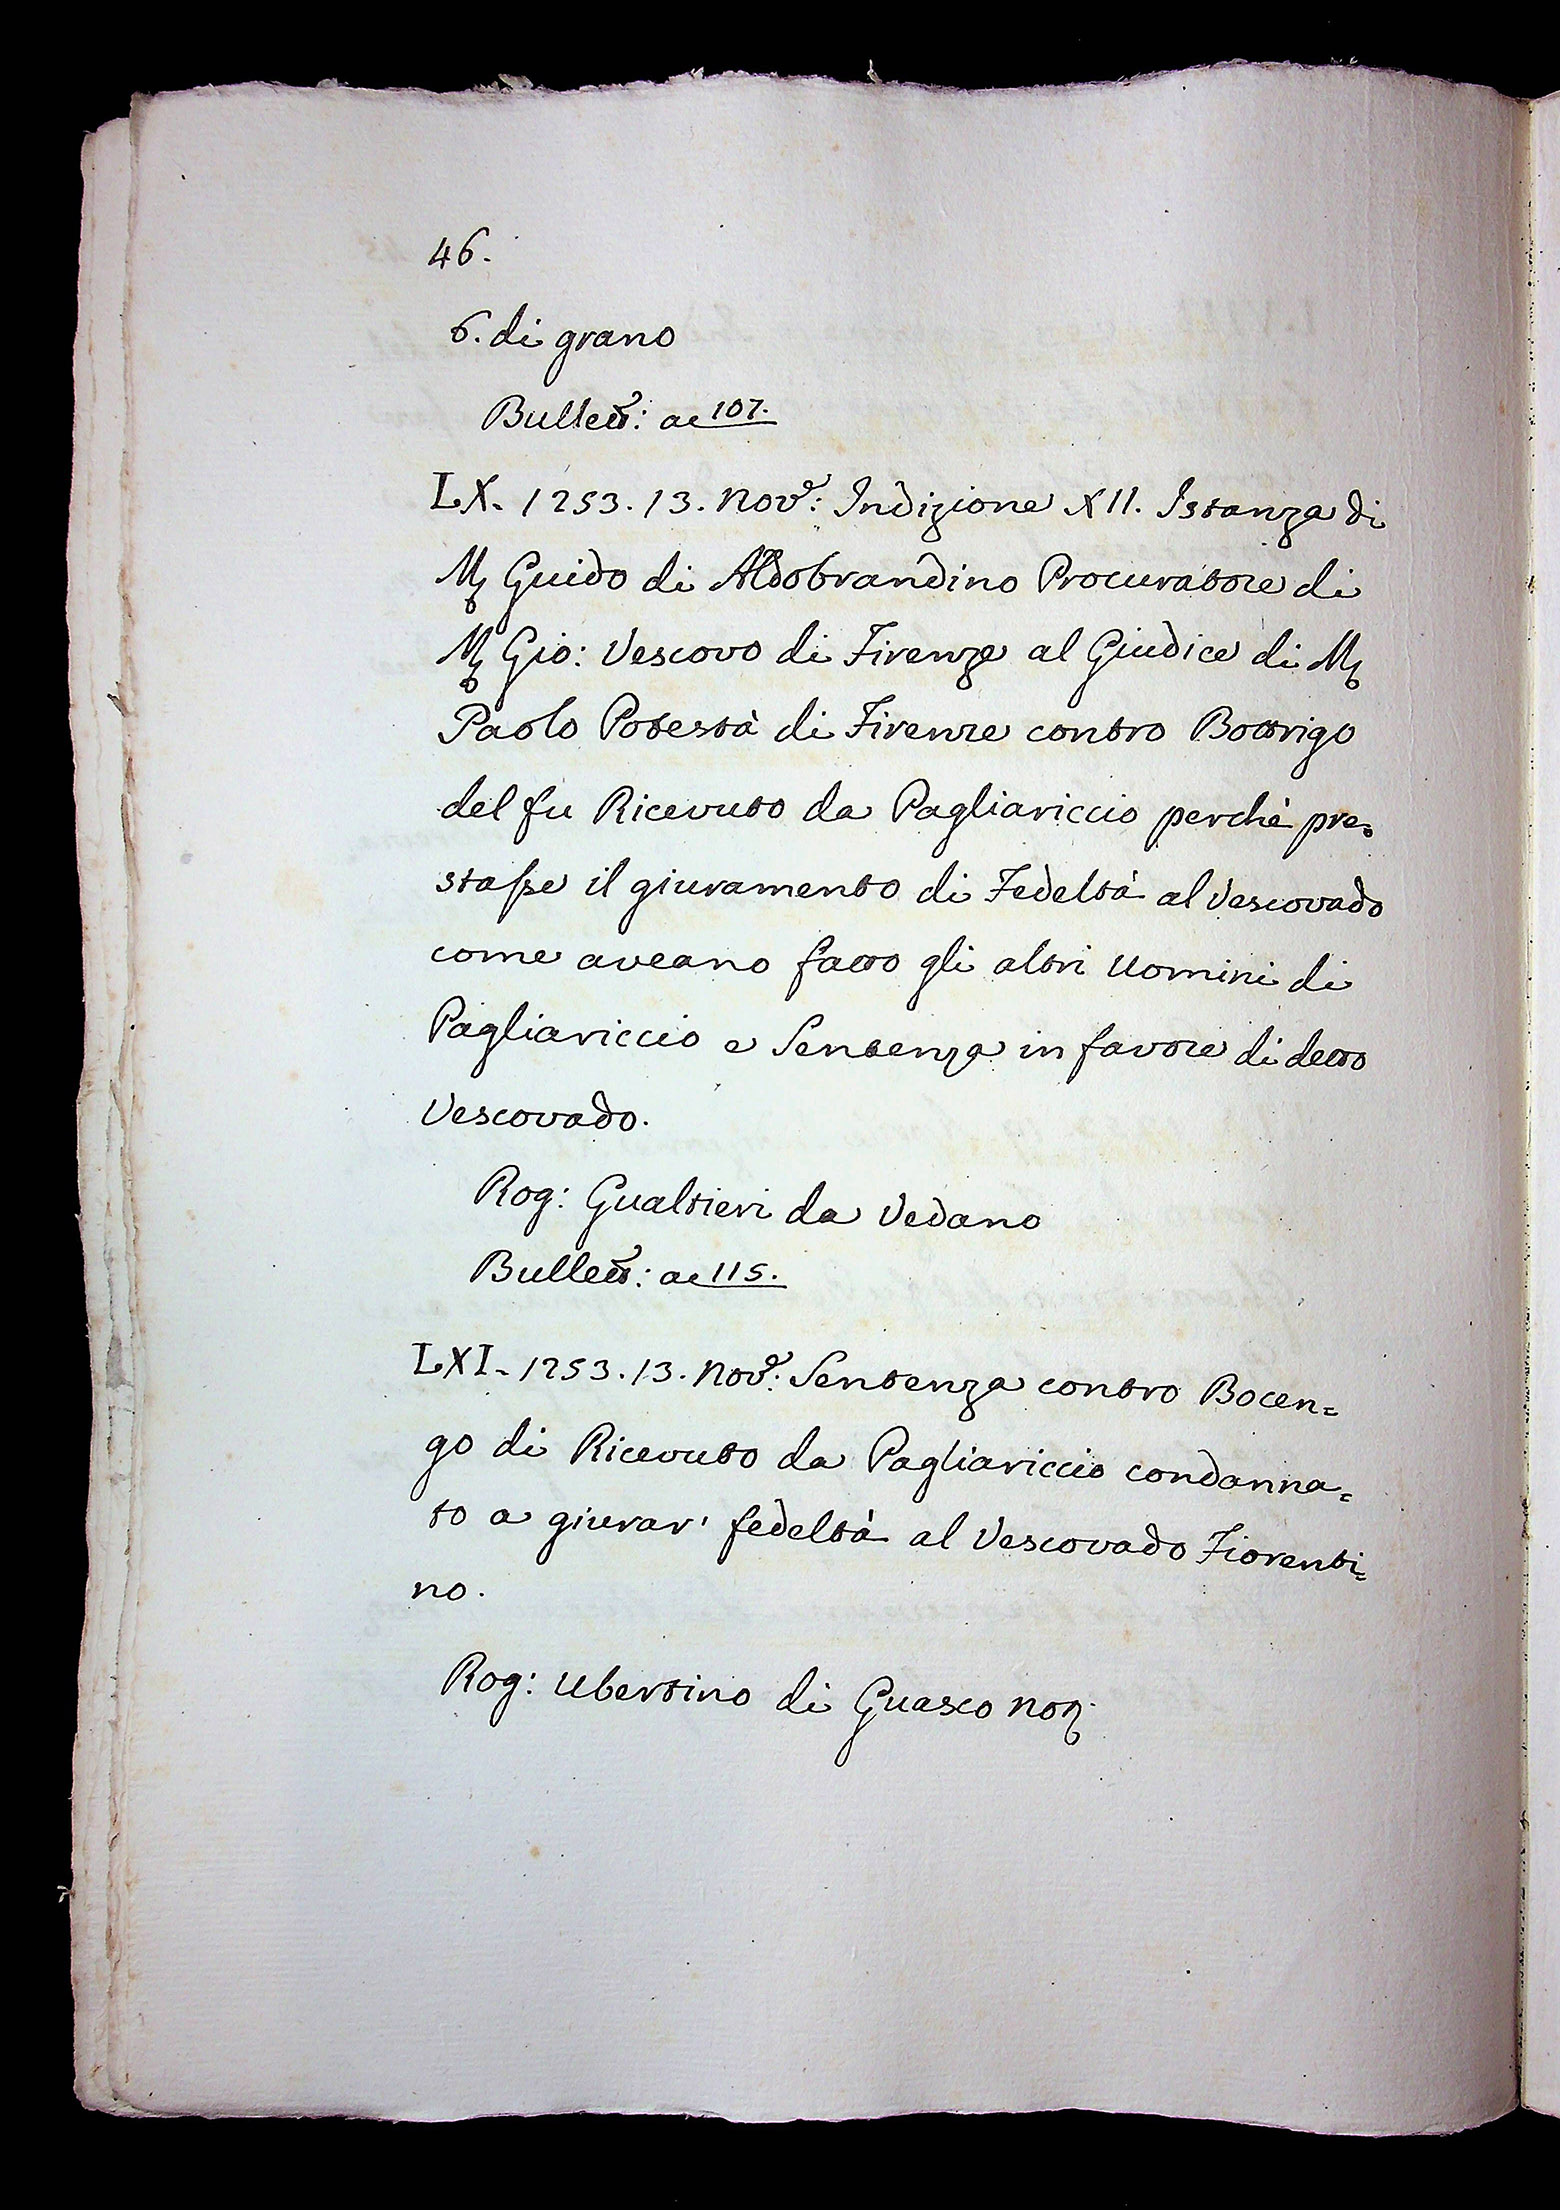 46.
6. di grano
Bullett: a 107.
LX. 1253. 13. Nov.e: Indizione XII. Istanza di
M Guido di Aldobrandino Procuratore di
M Gio: Vescovo di Firenze al Giudice di M
Paolo Potestà di Firenze contro Bottrigo
del fu Ricevuto da Pagliariccio perchè pre=
stasse il giuramento di Fedeltà al Vescovado
come aveano fatto gli altri Uomini di
Pagliariccio e Sentenza in favore di detto
Vescovado.
Rog: Gualtieri da Vedano
Bullett: a 115.
LXI. 1253. 13. Nov.e: Sentenza contro Bocen=
go di Ricevuto da Pagliariccio condanna=
to a giurar' fedeltà al Vescovado Fiorenti=
no.
Rog: Ubertino di Guasco Not.